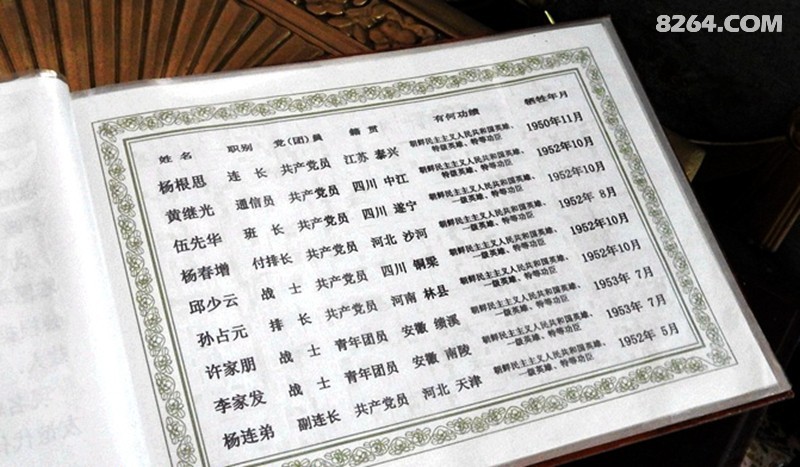 8264.COM
姓名 职别 党(团)员 籍贯 有何功绩 牺牲年月
杨根思 连长 共产党员 江苏 泰兴 朝鲜民主主义人民共和国英雄、 1950年11月
特级英雄、特等功臣
黄继光 通信员 共产党员 四川 中江 朝鲜民主主义人民共和国英雄、 1952年10月
特级英雄、特等功臣
伍先华 班长 共产党员 四川 遂宁 朝鲜民主主义人民共和国英雄、 1952年10月
一级英雄、特等功臣
杨春增 付排长 共产党员 河北 沙河 朝鲜民主主义人民共和国英雄、 1952年 8月
一级英雄、特等功臣
邱少云 战士 共产党员 四川 铜梁 朝鲜民主主义人民共和国英雄、 1952年10月
一级英雄、特等功臣
孙占元 排长 共产党员 河南 林县 朝鲜民主主义人民共和国英雄、 1952年10月
一级英雄、特等功臣
许家朋 战士 青年团员 安徽 绩溪 朝鲜民主主义人民共和国英雄、 1953年 7月
一级英雄、特等功臣
李家发 战士 青年团员 安徽 南陵 朝鲜民主主义人民共和国英雄、 1953年 7月
一级英雄、特等功臣
杨连弟 副连长 共产党员 河北 天津 朝鲜民主主义人民共和国英雄、 1952年 5月
一级英雄、特等功臣